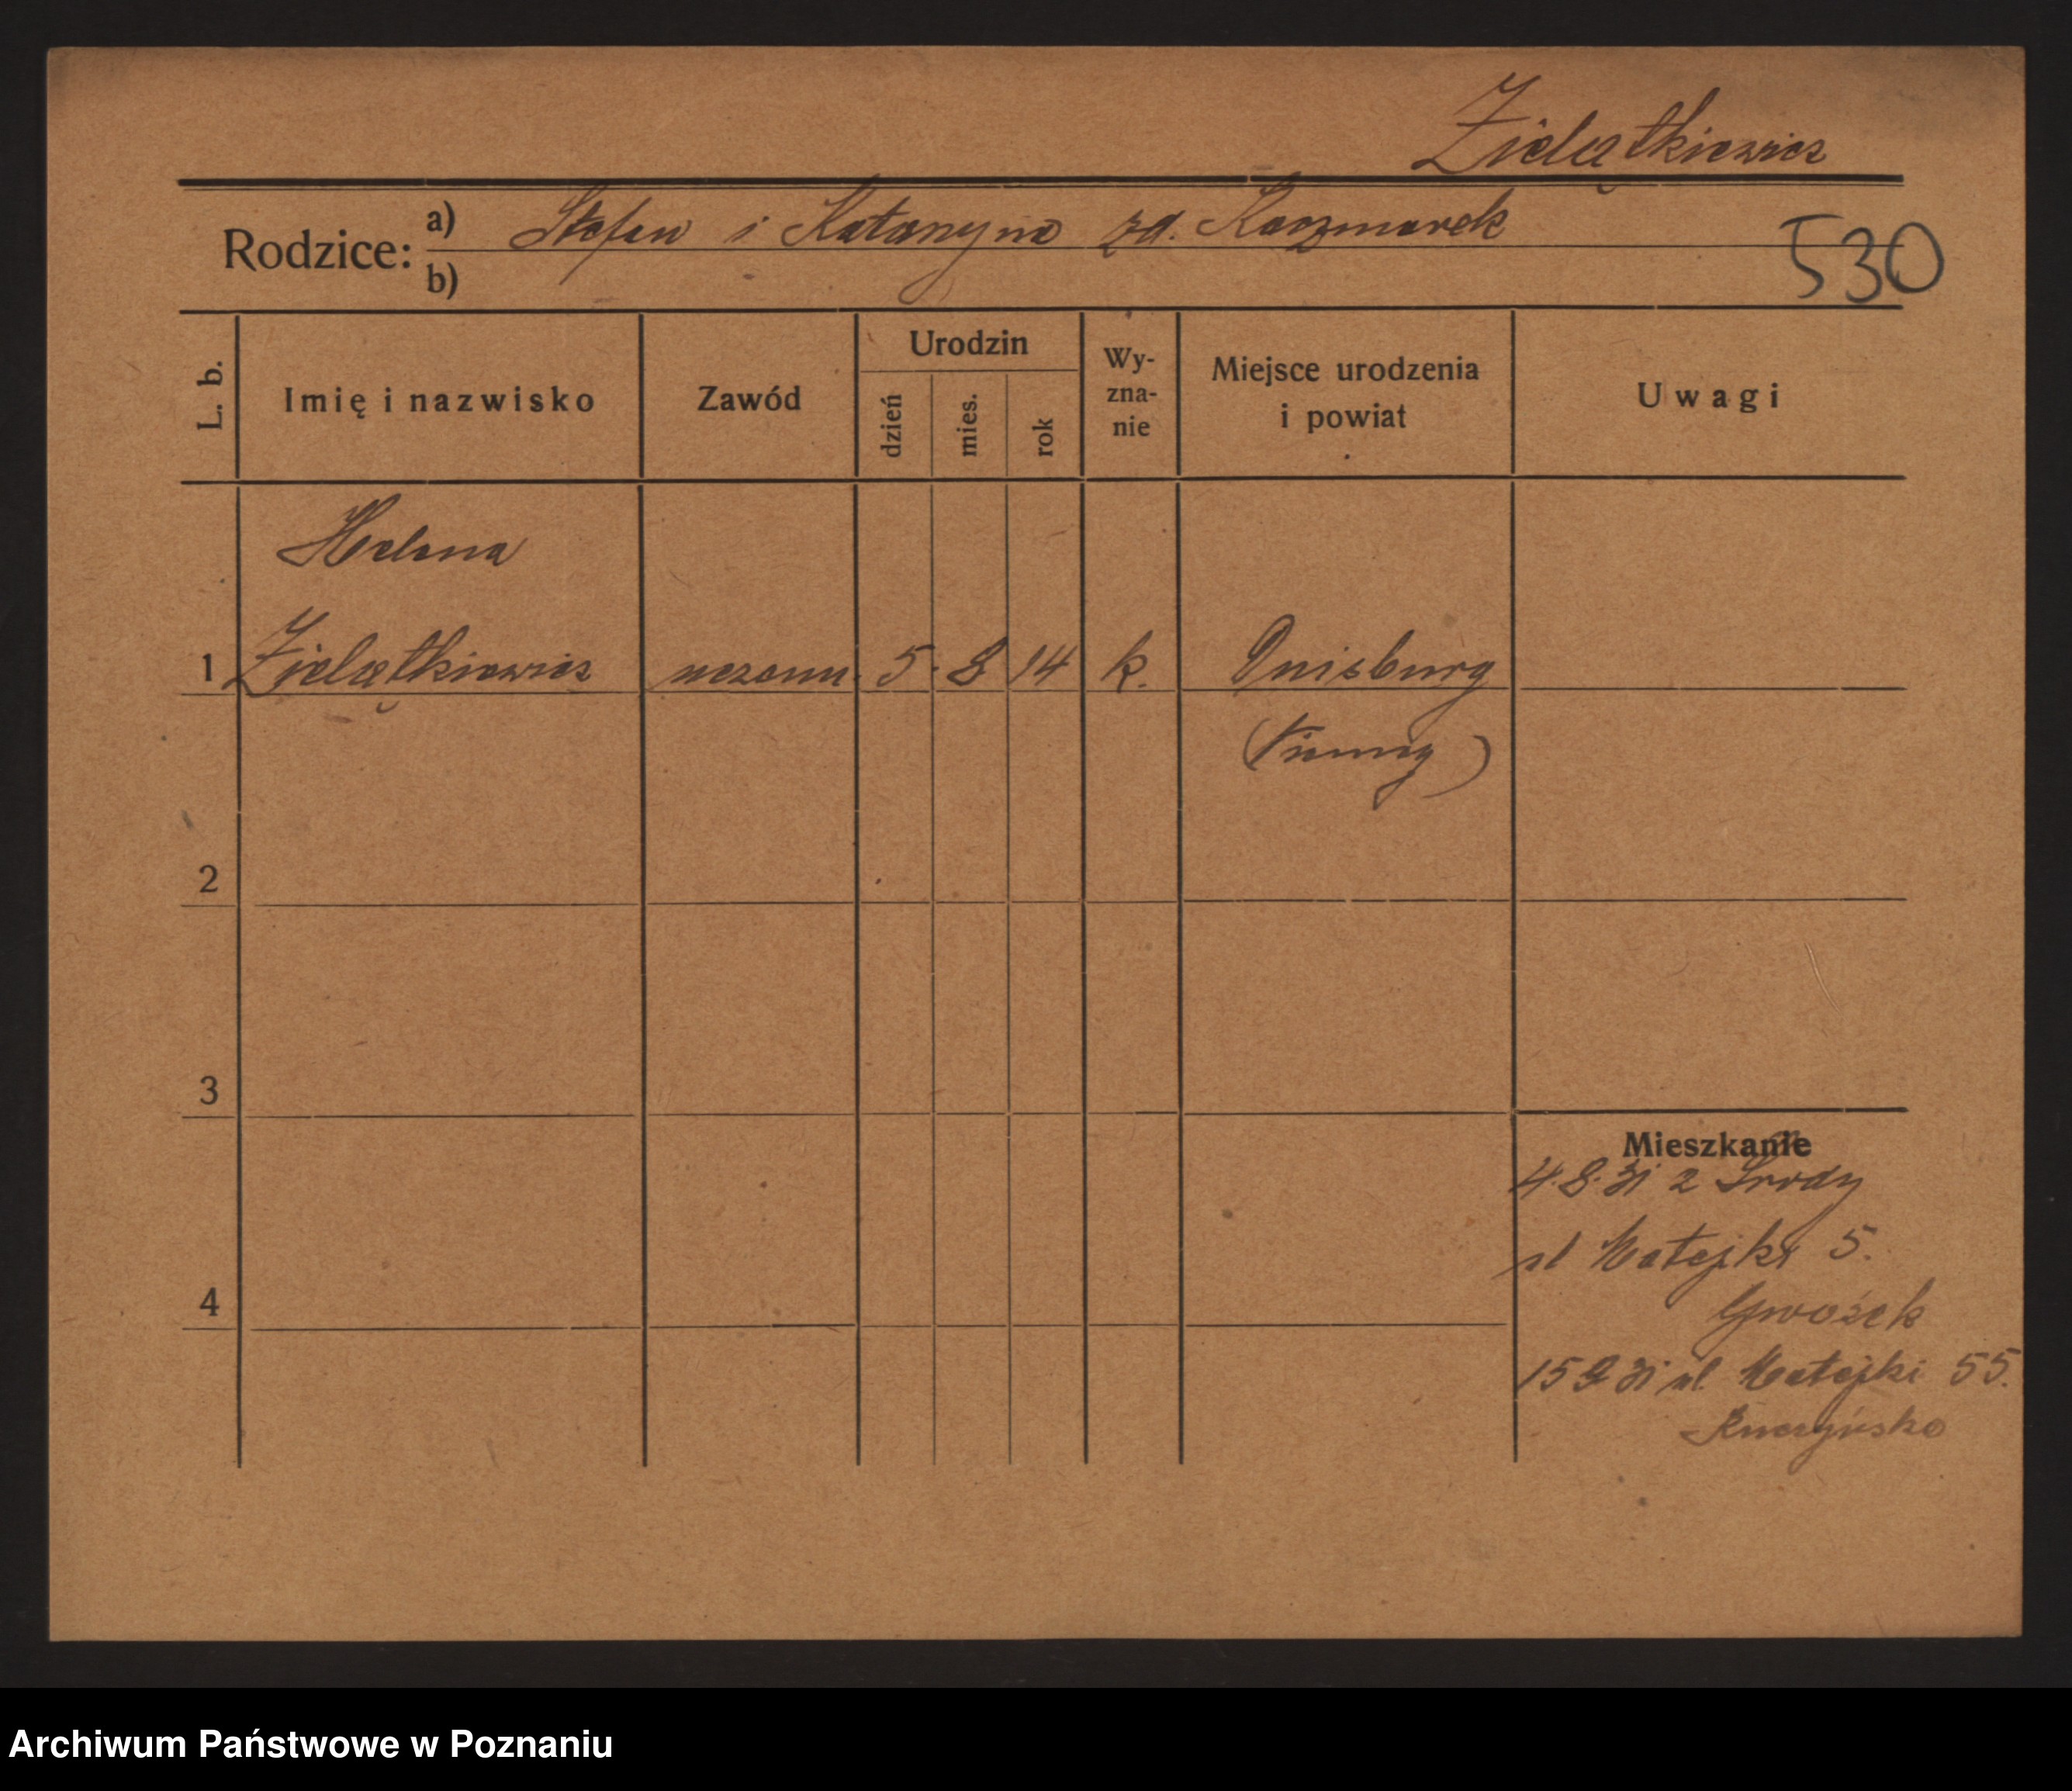 Zielątkiewicz
Rodzice: a) Stefan i Katarzyna zd. Kaczmarek
b)
530
L. b. Imię i nazwisko Zawód Urodzin dzień mies. rok Wy-zna-nie Miejsce urodzenia i powiat Uwagi
Helena
1 Zielątkiewicz uczenn. 5. 8 14 k. Duisburg
(Niemcy)
2
3
Mieszkanie
4.8.31 z Środy
ul Matejki 5.
4
Gwozek
15 9 31 ul. Matejki 55.
Archiwum Państwowe w Poznaniu